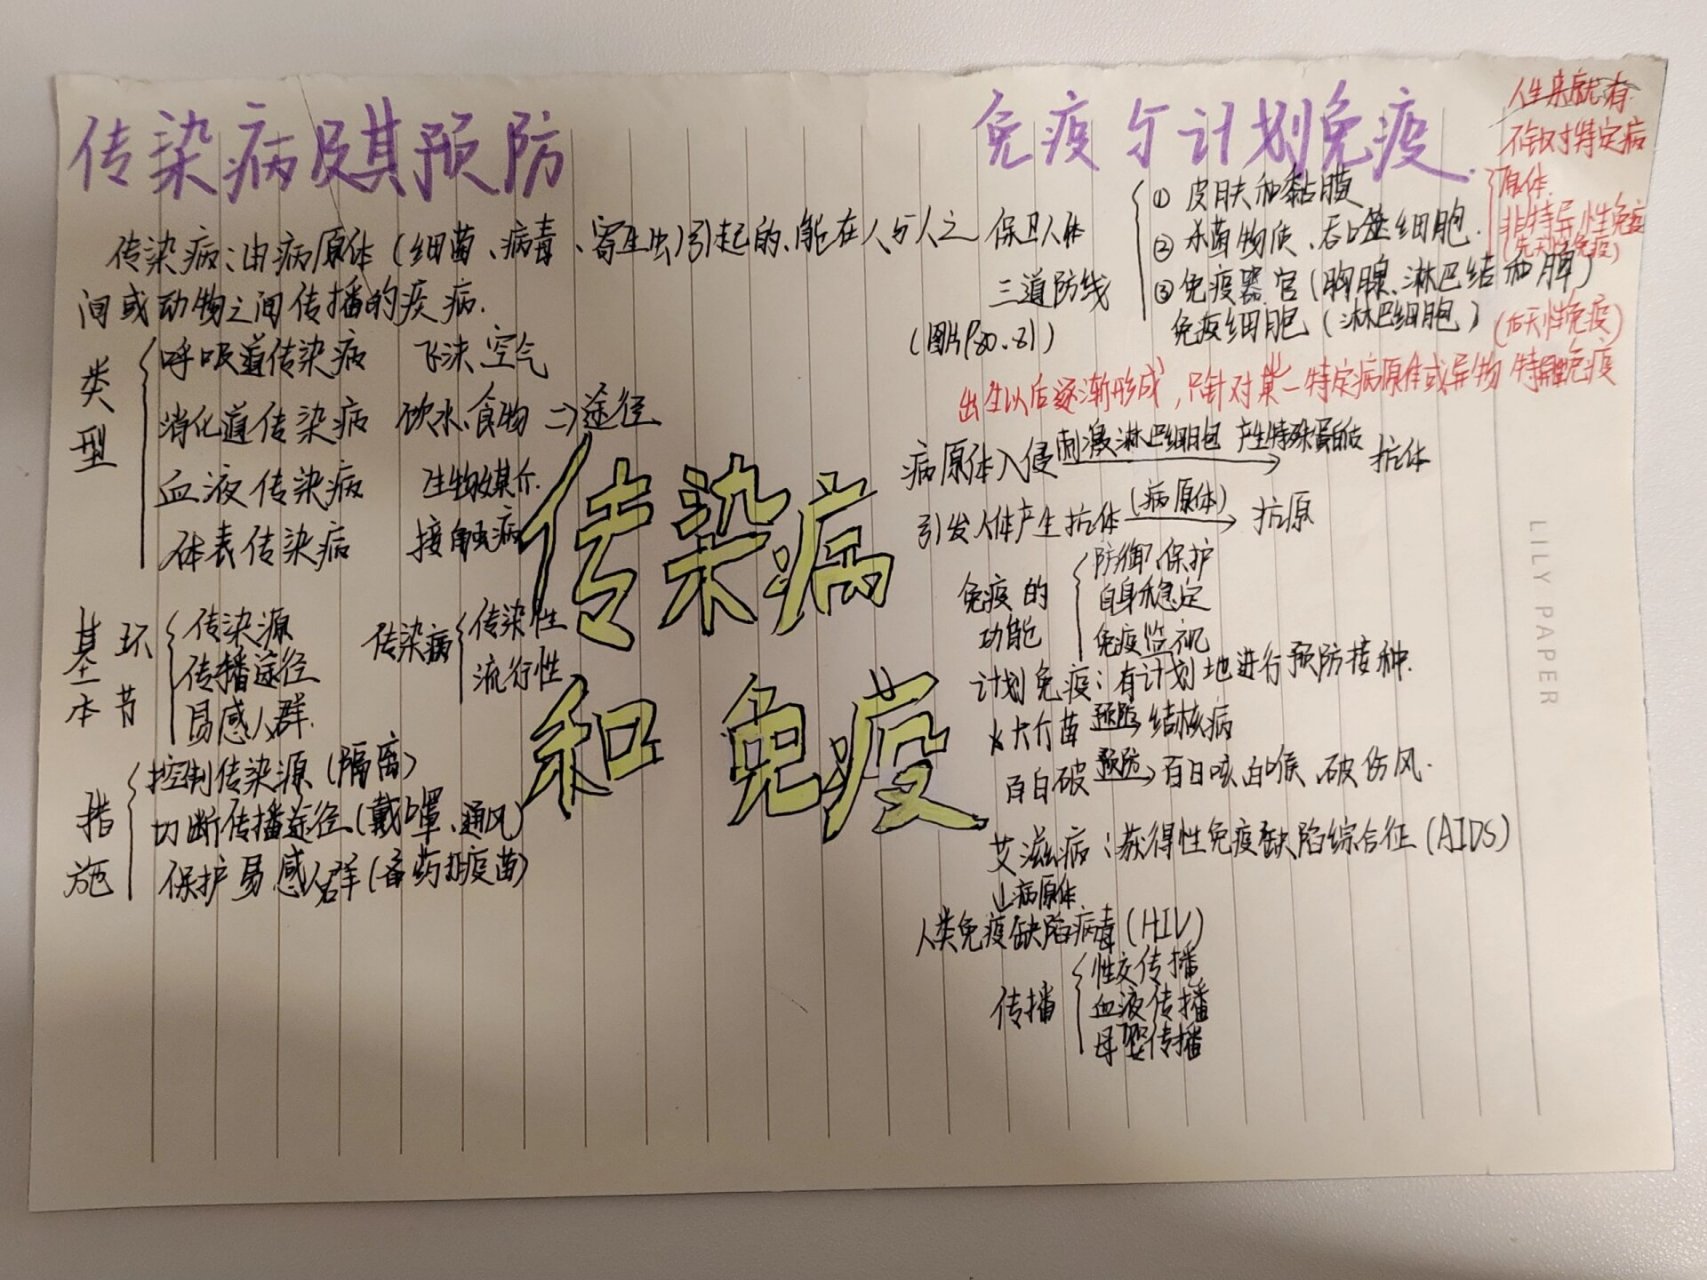 传染病及其预防
传染病:由病原体(细菌、病毒、寄生虫)引起的、能在人与人之
间或动物之间传播的疾病.
类型
呼吸道传染病 飞沫、空气
消化道传染病 饮水、食物 => 途径
血液传染病 生物媒介.
体表传染病 接触病
基本环节
传染源
传播途径
易感人群.
传染病
传染性
流行性
措施
控制传染源(隔离)
切断传播途径(戴口罩、通风)
保护易感人群(备药打疫苗)
传染病
和免疫
免疫与计划免疫.
人生来就有
不针对特定病
原体.
非特异性免疫
(先天性免疫)
保卫人体
三道防线
(图片P80、81)
① 皮肤和黏膜
② 杀菌物质、吞噬细胞.
③ 免疫器官(胸腺、淋巴结和脾)
免疫细胞(淋巴细胞)
(后天性免疫)
出生以后逐渐形成,只针对某一特定病原体或异物 特异性免疫
病原体入侵 刺激淋巴细胞 产生特殊蛋白质 → 抗体
引发人体产生抗体 (病原体) → 抗原
免疫的
功能
防御、保护
自身稳定
免疫监视
计划免疫:有计划地进行预防接种.
卡介苗 预防→ 结核病
百白破 预防→ 百日咳、白喉、破伤风.
艾滋病:获得性免疫缺陷综合征(AIDS)
↓病原体
人类免疫缺陷病毒(HIV)
传播
性交传播
血液传播
母婴传播
LILY PAPER